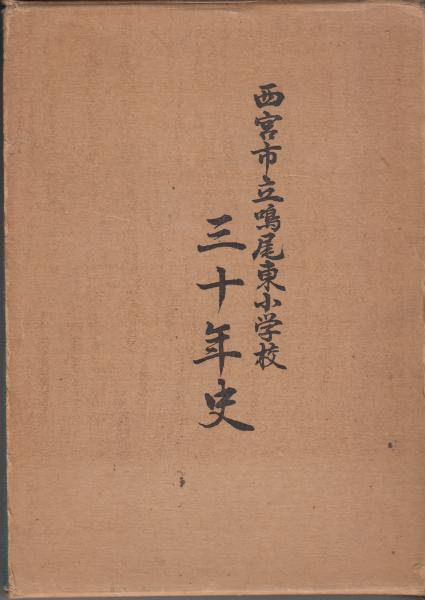 西宮市立鳴尾東小学校
三十年史